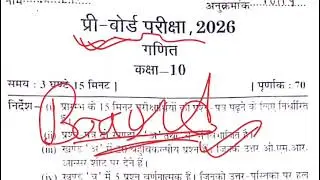 अनुक्रमांक
प्री-बोर्ड परीक्षा, 2026
गणित
कक्षा-10
समय : 3 घण्टे 15 मिनट] [पूर्णांक : 70
निर्देश- (i) प्रारम्भ के 15 मिनट परीक्षार्थियों को प्रश्न-पत्र पढ़ने के लिए निर्धारित
हैं।
(ii)
(iii) खण्ड 'अ' में 20 बहुविकल्पीय प्रश्न हैं जिनके उत्तर ओ.एम.आर.
आन्सर शीट पर देने हैं।
(iv) खण्ड 'ब' में 5 प्रश्न वर्णनात्मक हैं। जिनको उत्तर-पुस्तिका पर हल